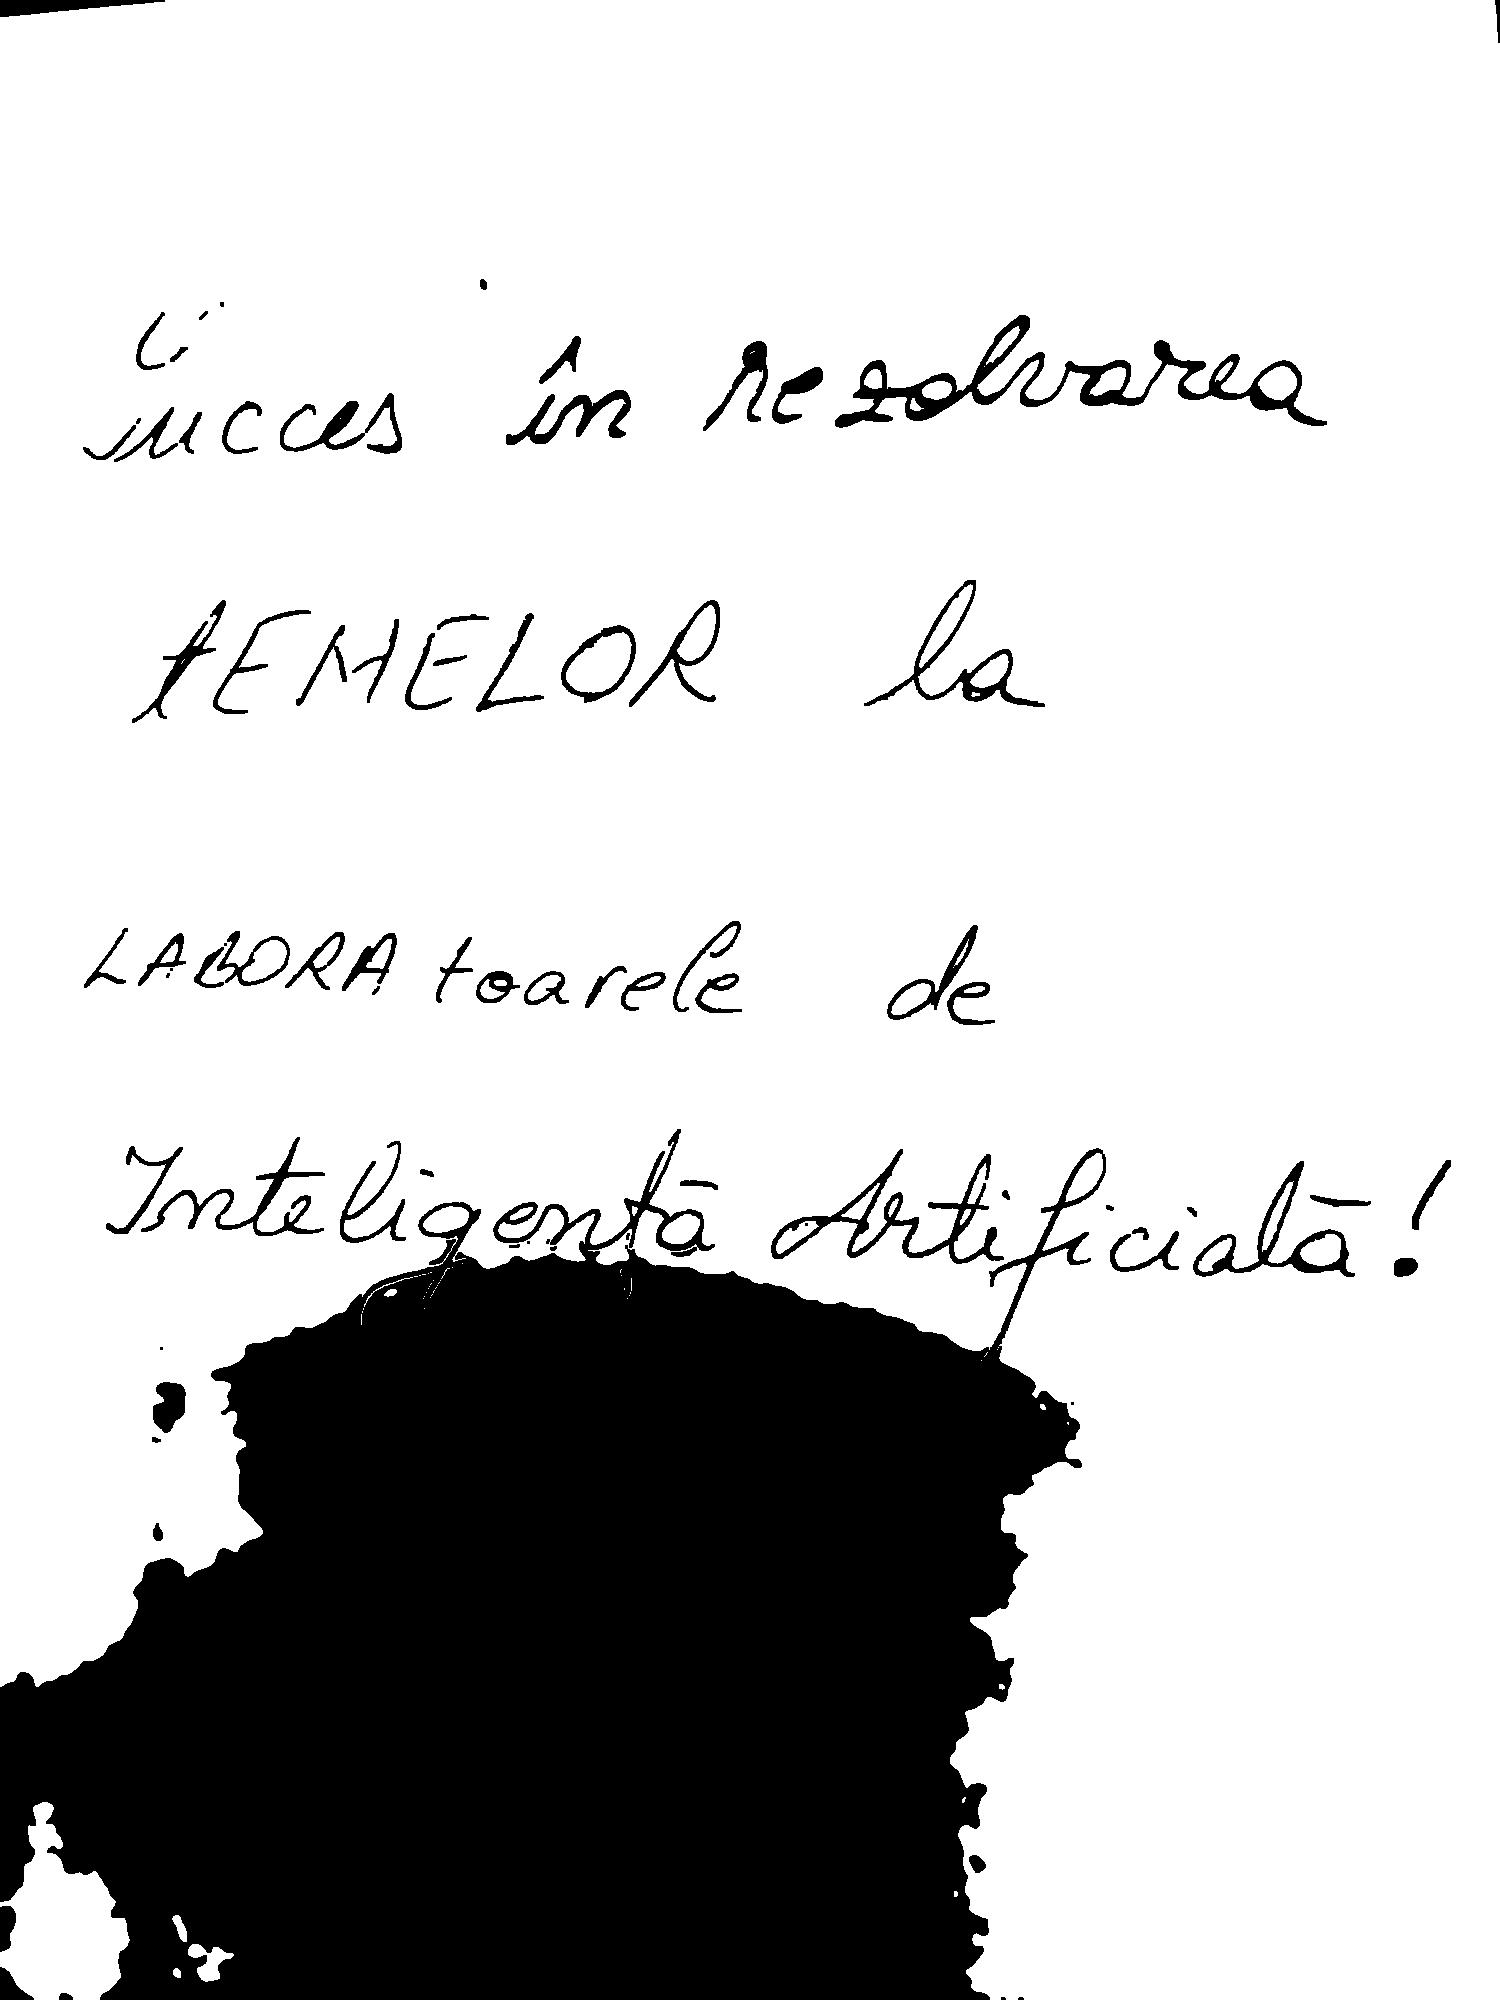 succes în rezolvarea
tEMELOR la
LABORAtoarele de
Inteligență Artificială!